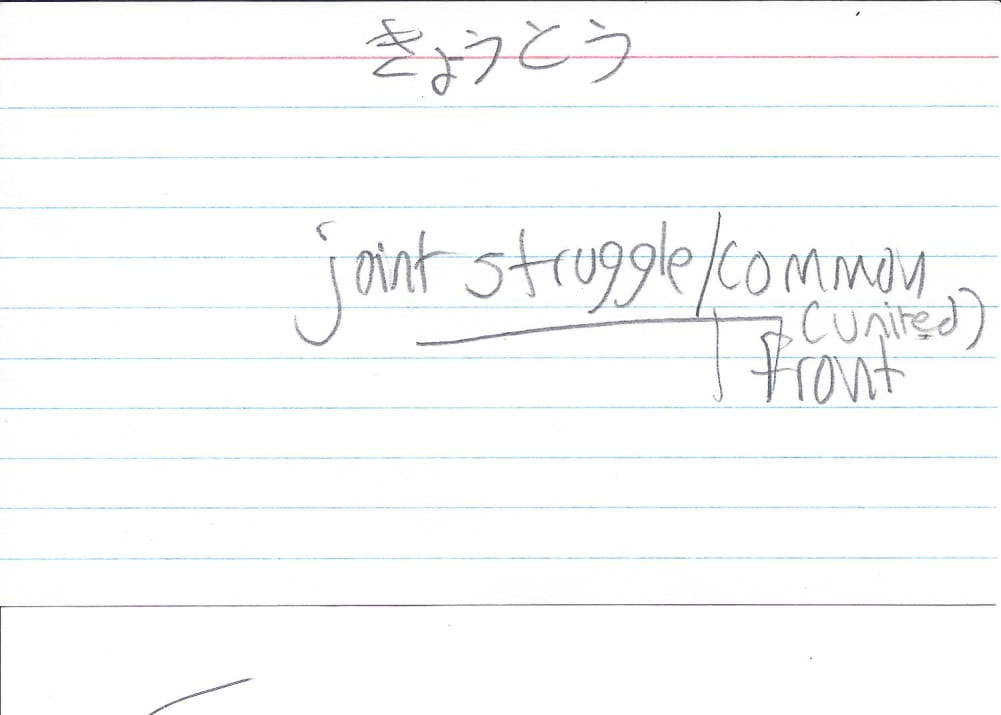 きょうとう
joint struggle/common
(united)
front